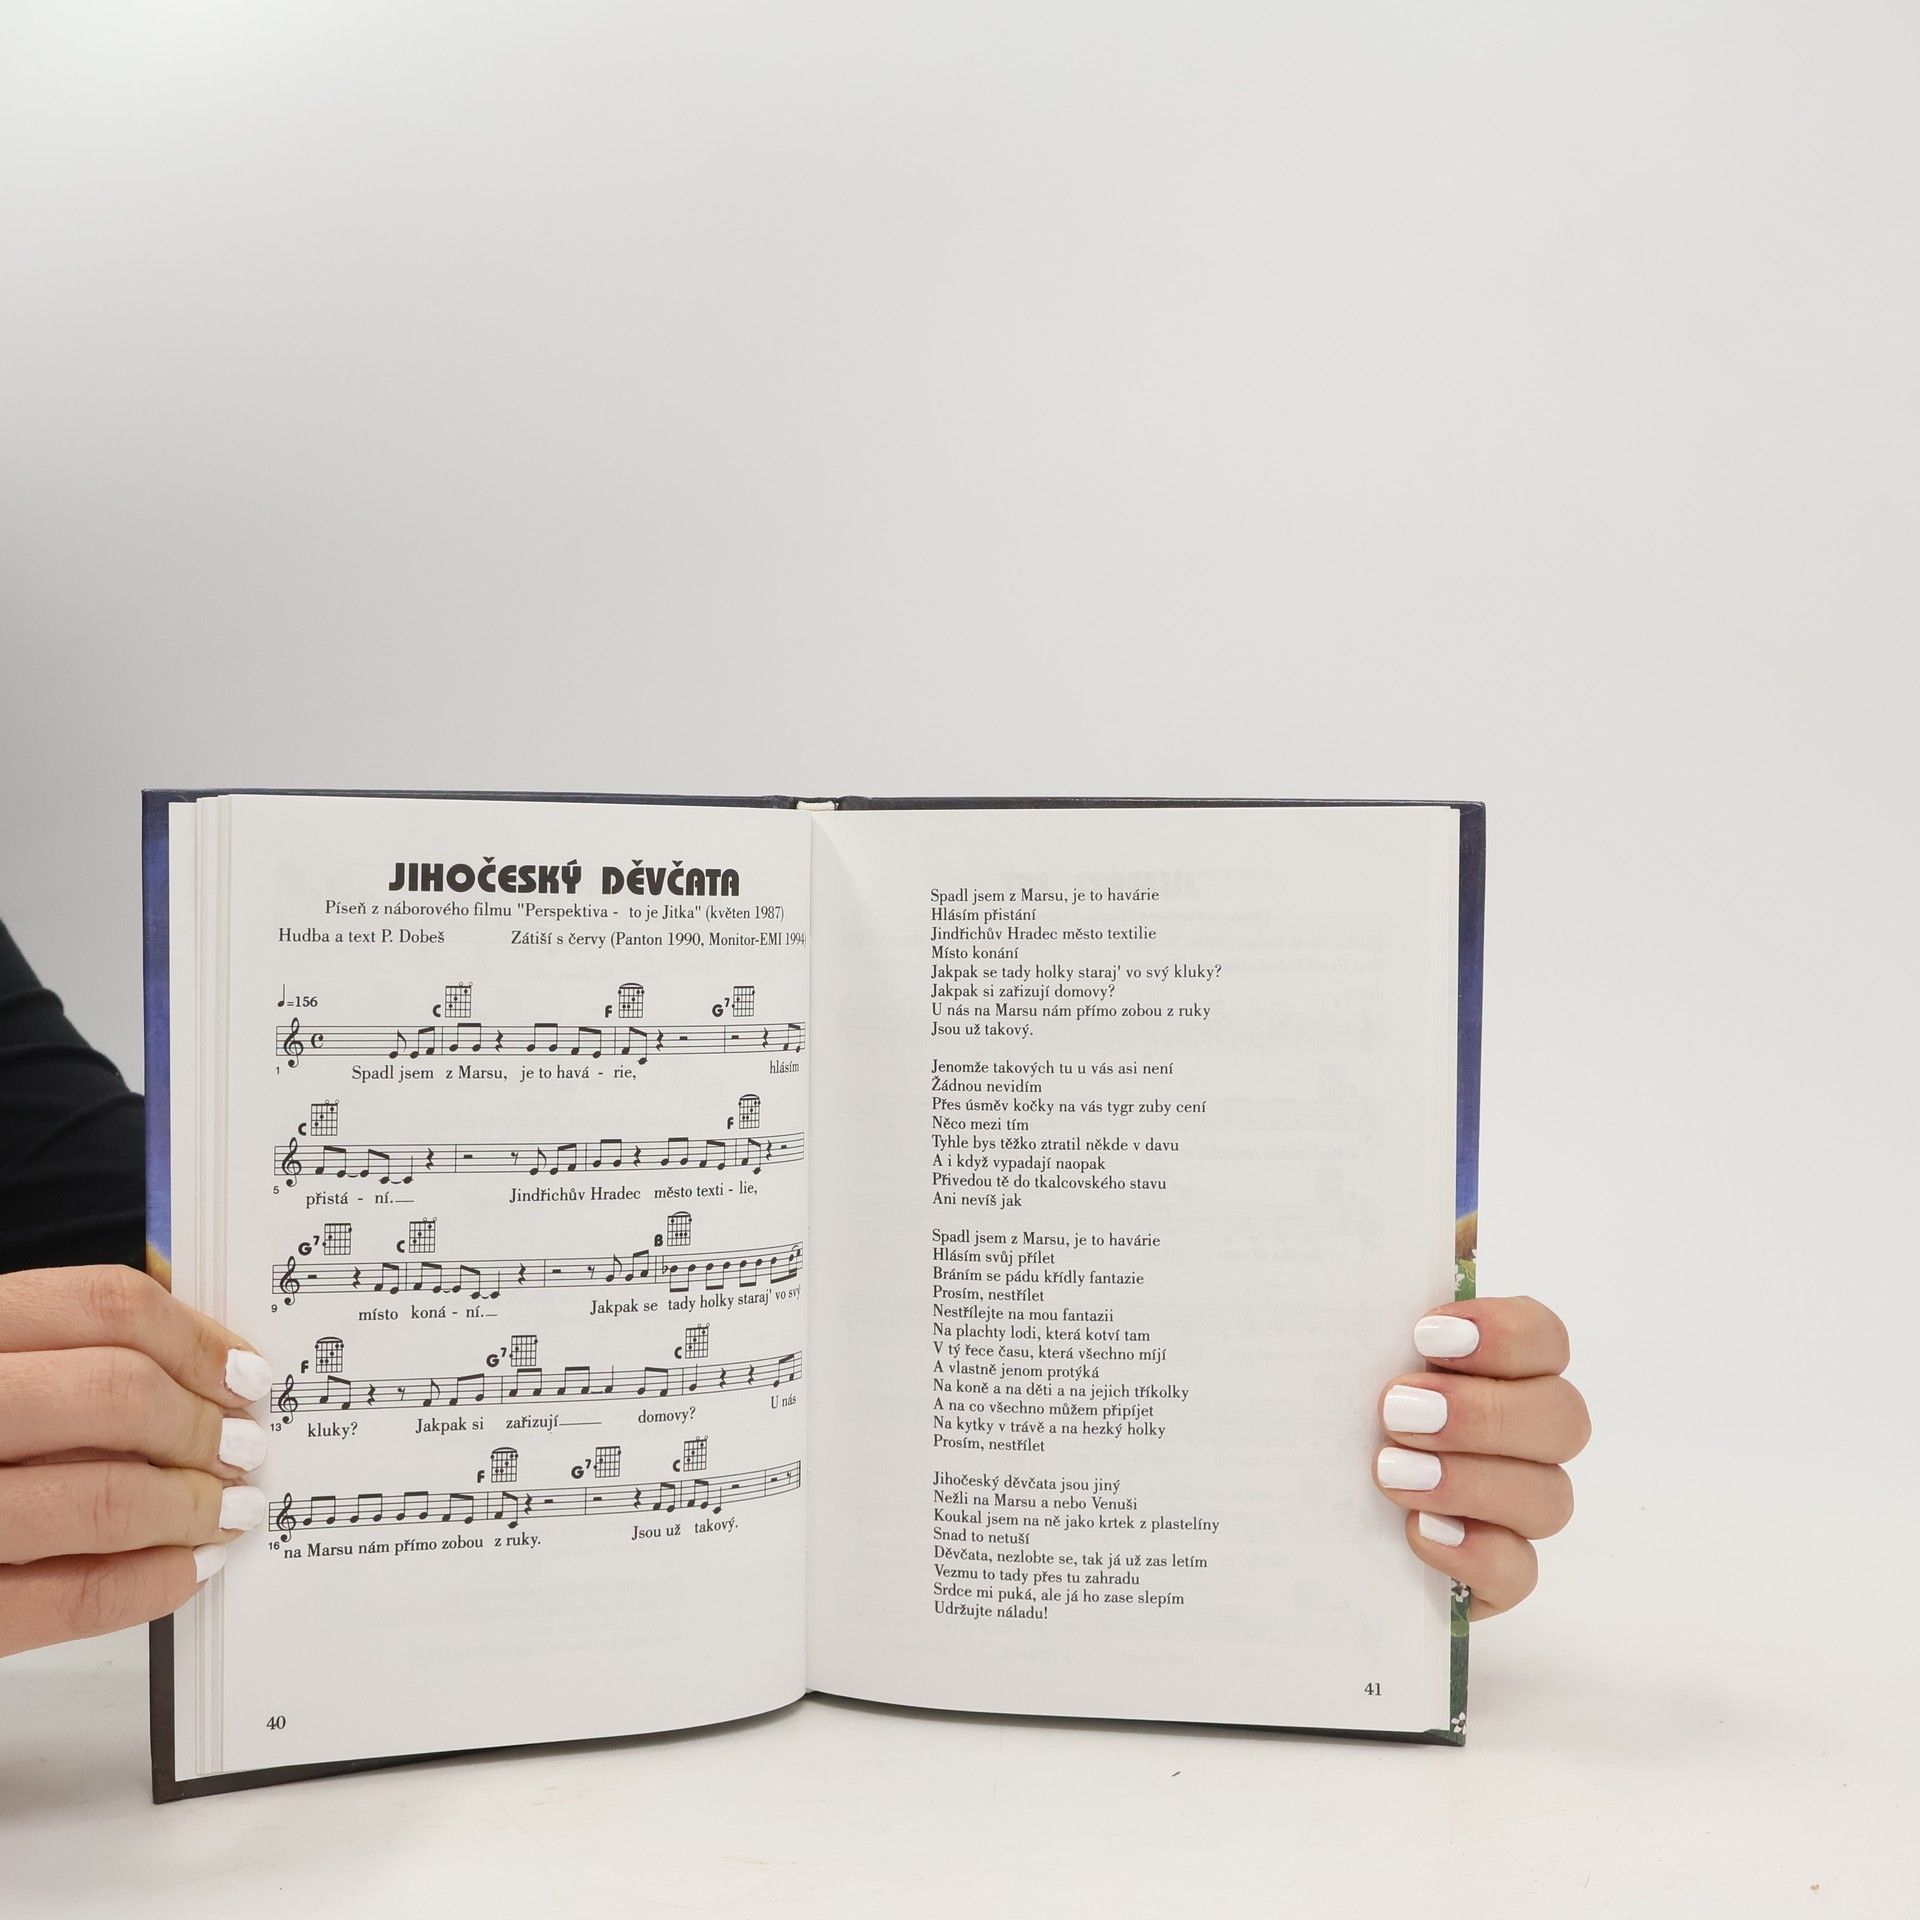 JIHOČESKÝ DĚVČATA
Píseň z náborového filmu "Perspektiva - to je Jitka" (květen 1987)
Hudba a text P. Dobeš Zátiší s červy (Panton 1990, Monitor-EMI 1994)
♩=156
C F G7
1 Spadl jsem z Marsu, je to havá - rie, hlásím
C F
5 přistá - ní. Jindřichův Hradec město texti - lie,
G7 C B
9 místo koná - ní. Jakpak se tady holky staraj' vo svý
F G7 C
13 kluky? Jakpak si zařizují domovy? U nás
F G7 C
16 na Marsu nám přímo zobou z ruky. Jsou už takový.
40
Spadl jsem z Marsu, je to havárie
Hlásím přistání
Jindřichův Hradec město textilie
Místo konání
Jakpak se tady holky staraj' vo svý kluky?
Jakpak si zařizují domovy?
U nás na Marsu nám přímo zobou z ruky
Jsou už takový.
Jenomže takových tu u vás asi není
Žádnou nevidím
Přes úsměv kočky na vás tygr zuby cení
Něco mezi tím
Tyhle bys těžko ztratil někde v davu
A i když vypadají naopak
Přivedou tě do tkalcovského stavu
Ani nevíš jak
Spadl jsem z Marsu, je to havárie
Hlásím svůj přílet
Bráním se pádu křídly fantazie
Prosím, nestřílet
Nestřílejte na mou fantazii
Na plachty lodi, která kotví tam
V tý řece času, která všechno míjí
A vlastně jenom protýká
Na koně a na děti a na jejich tříkolky
A na co všechno můžem připíjet
Na kytky v trávě a na hezký holky
Prosím, nestřílet
Jihočeský děvčata jsou jiný
Nežli na Marsu a nebo Venuši
Koukal jsem na ně jako krtek z plastelíny
Snad to netuší
Děvčata, nezlobte se, tak já už zas letím
Vezmu to tady přes tu zahradu
Srdce mi puká, ale já ho zase slepím
Udržujte náladu!
41